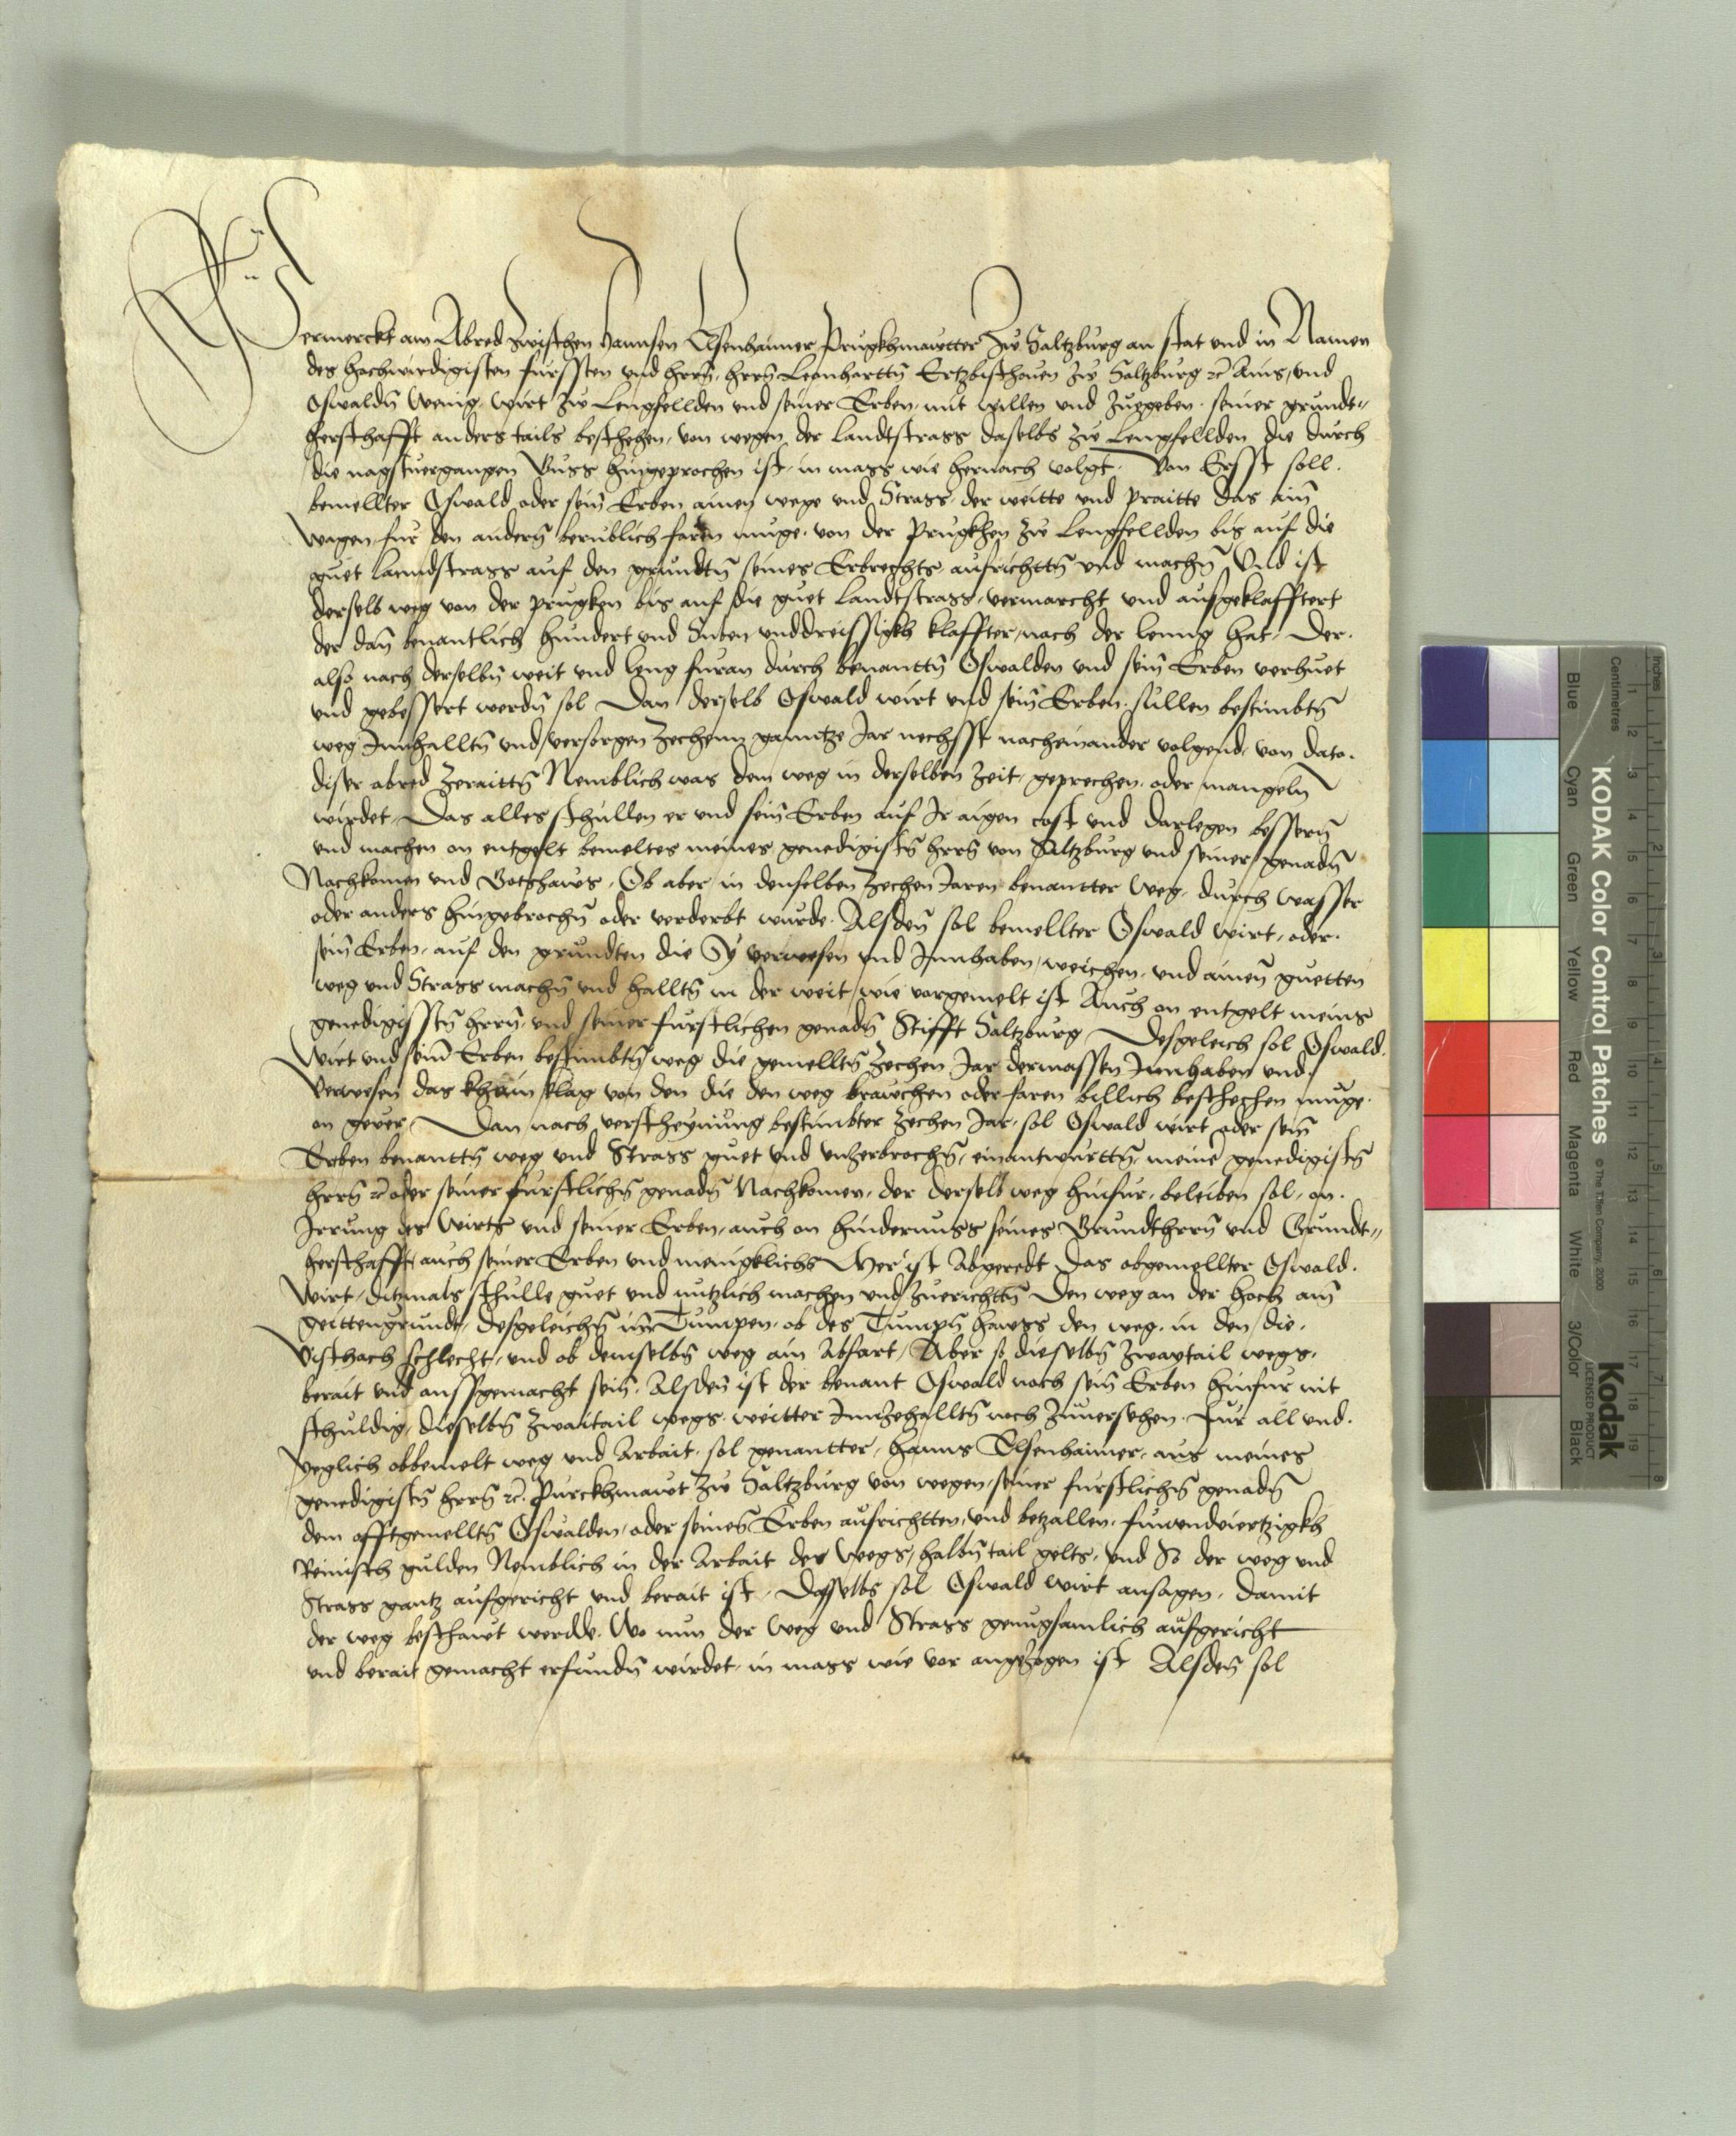 Vermerckt ain Abred zwischen Hannsen Elsenhaimer Prugkhmautter Zw Saltzburg an stat und in Namen
des hochwirdigisten fursten und herrn, herrn Leonharttn Ertzbischoven zw Saltzburg rc Ains, und
Oswaldn Wenig, Wirt zw Lengfellden und seiner Erben, mit willen und zuegeben seiner grundt=
herschafft anders tails beschehen, von wegen der Landtstrass daselbs zw Lengfellden die durch
die nagstuergangen Guss hingeprochen ist, in mass wie hernach volgt. Von Erst soll
bemellter Oswald oder sein Erben ainen wege und Strass, der weitte und praitte das ain
wagen fur den andern berublich faren muge, von der Prugkhen zw Lengfellden bis auf die
guet Lanndstrass auf den grundtn seines Erbrechts, aufrichttn und machn Und ist
derselb weg von der prugken bis auf die guet Landtstrass, vermarcht und ausgeklafftert
der dan benantlich hundert und Siben unddreissigkh klaffter, nach der lenng hat, Der
also nach derselbn weit und leng furan durch benanttn Oswalden und sein Erben verhuet
und gebessert werdn sol Dan derselb Oswald wirt und sein Erben sullen bestimbtn
weg Innhalltn und versorgen zechenn ganntze Jar nechst nacheinander volgend, von dato
diser abred zeraittn Nemblich was dem weg in derselben zeit, geprechen oder mangeln
wirdet, Das alles schullen er und sein Erben auf Ir aigen cost und darlegen bessern
und machen on entgelt bemeltes meines genedigistn herrn von Saltzburg und seiner genadn
Nachkomen und Gotshaws, Ob aber in denselben zechen Jaren benantter weg, durch wasser
oder anders hingebrochn oder verderbt wurde, Alsden sol bemellter Oswald wirt, oder
sein Erben, auf den grundten die Sy verwesen und Innhaben, weichen, und ainen guetten
weg und Strass machn und halltn in der weit, wie vorgemelt ist Auch on entgelt meins
genedigistn herrn, und seiner furstlichen genadn Stifft Saltzburg Desgeleich sol Oswald
Wirt und sein Erben bestimbtn weg die gemelltn zechen Jar dermassen Innhaben und
verwesen das khain klag von den die den weg brauchen oder faren billich beschechen muge
on gever, Dan nach verscheynung bestimbter zechen Jar, sol Oswald wirt oder sein
Erben benanttn weg und Strass guet und unzerbrochn, einantwurttn, meine genedigistn
herrn rc oder seiner furstlichn genadn Nachkomen, der derselb weg hinfur, beleiben sol, on
Irrung des Wirts und seiner Erben, auch on hindernuss seines Grundthern und Grundt=
herschafft, auch seiner Erben und menigklichs Mer ist Abgeredt Das obgemellter Oswald
Wirt, ditzmals schulle guet und nutzlich machen und zuerichttn Den weg an der hoch am
geittengrundt, desgeleichn im Tumpen, ob des Tumpn hawss den weg, in den, die
Vischach schlecht, und ob demselbn weg ain Abfart, Aber so dieselbn zwaytail wegs,
berait und aussgemacht sein, Alsden ist der benant Oswald noch sein Erben hinfur nit
schuldig, dieselbn zwaitail wegs, weitter Innzehalltn noch zuuersehen. Fur all und
yeglich obbemelt weg und Arbait, sol genantter, Hanns Elsenhaimer, aus meines
genedigistn herrn rc. Purckhmawt zw Saltzburg von wegen, seiner furstlichn genadn
dem offtgemelltn Oswalden, oder seinen Erben aufrichtten, und betzallen, funfundviertzigkh
Reinisch gulden Nemblich in der Arbait des Wegs, halbn tail gelts, und So der weg und
Strass gantz aufgericht und berait ist, Dasselbs sol Oswald wirt ansagen, damit
der weg beschawt werdde. Wo nun der Weg und Strass genugsamlich aufgericht
und berait gemacht erfundn wirdet, in mass wie vor angezogen ist Alsden sol
KODAK Color Control Patches © The Tiffen Company, 2000
Kodak
LICENSED PRODUCT
Blue Cyan Green Yellow Red Magenta White 3/Color Black
Centimetres 1 2 3 4 5 6 7 8 9 10 11 12 13 14 15 16 17 18 19
Inches 1 2 3 4 5 6 7 8